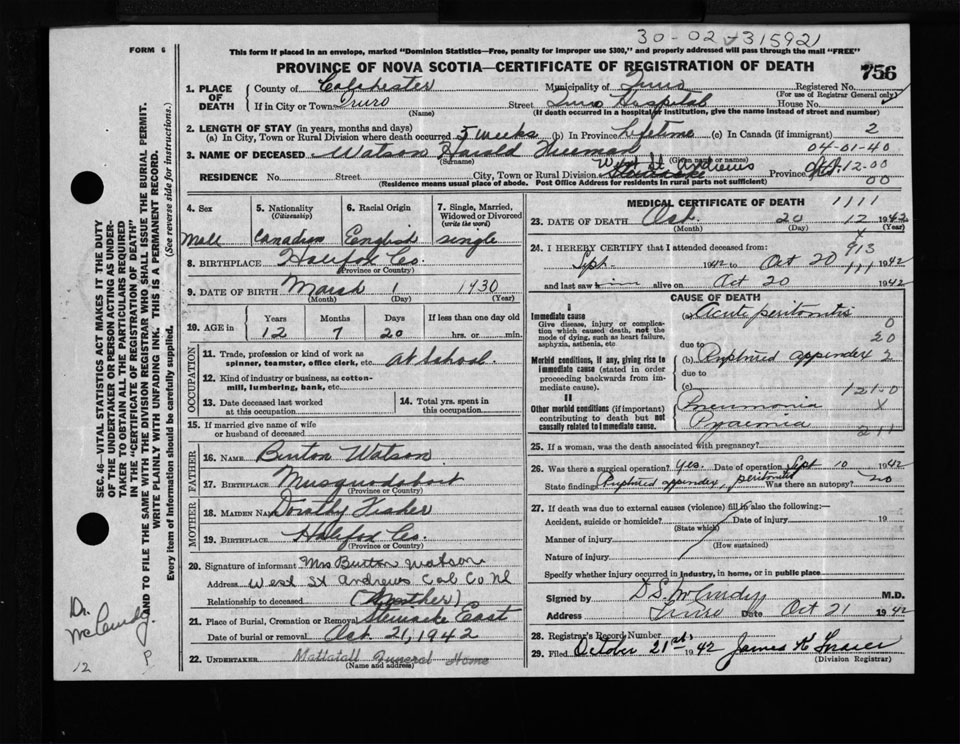 30-02-315921
FORM 6
This form if placed in an envelope, marked "Dominion Statistics—Free, penalty for improper use $300," and properly addressed will pass through the mail "FREE"
PROVINCE OF NOVA SCOTIA—CERTIFICATE OF REGISTRATION OF DEATH
756
1. PLACE OF DEATH
County of Colchester Municipality of Truro Registered No.
(For use of Registrar General only)
If in City or Town Truro Street Truro Hospital House No.
(Name) (If death occurred in a hospital or institution, give the name instead of street and number)
2. LENGTH OF STAY (in years, months and days)
(a) In City, Town or Rural Division where death occurred 5 weeks (b) In Province Lifetime (c) In Canada (if immigrant) 2
3. NAME OF DECEASED Watson Harald Freeman 04-01-40
(Surname) (Given name or names)
West St Andrews 12-00
RESIDENCE No. Street City, Town or Rural Division Province 00
(Residence means usual place of abode. Post Office Address for residents in rural parts not sufficient)
4. Sex Male
5. Nationality (Citizenship) Canadian
6. Racial Origin English
7. Single, Married, Widowed or Divorced (write the word) single
8. BIRTHPLACE Halifax Co.
(Province or Country)
9. DATE OF BIRTH March 1 1930
(Month) (Day) (Year)
10. AGE in Years Months Days If less than one day old
12 7 20 hrs. or min.
OCCUPATION
11. Trade, profession or kind of work as spinner, teamster, office clerk, etc. At School.
12. Kind of industry or business, as cotton-mill, lumbering, bank, etc.
13. Date deceased last worked at this occupation
14. Total yrs. spent in this occupation
15. If married give name of wife or husband of deceased
FATHER
16. NAME Burton Watson
17. BIRTHPLACE Musquodoboit
(Province or Country)
MOTHER
18. MAIDEN NAME Dorothy Fisher
19. BIRTHPLACE Halifax Co.
(Province or Country)
20. Signature of informant Mrs Burton Watson
Address West St Andrews Col Co NS
Relationship to deceased (Mother)
21. Place of Burial, Cremation or Removal Stewiacke East
Date of burial or removal Oct. 21, 1942
22. UNDERTAKER Mattatall Funeral Home
(Name and address)
MEDICAL CERTIFICATE OF DEATH 1111
23. DATE OF DEATH Oct. 20 12 1942
(Month) (Day) (Year)
24. I HEREBY CERTIFY that I attended deceased from: 913
Sept. 1942 to Oct 20 1942
and last saw him alive on Oct 20 1942
CAUSE OF DEATH
I
Immediate cause
Give disease, injury or complication which caused death, not the mode of dying, such as heart failure, asphyxia, asthenia, etc
(a) Acute peritonitis 0
due to 20
Morbid conditions, if any, giving rise to immediate cause (stated in order proceeding backwards from immediate cause).
(b) Ruptured appendex 2
due to
(c) 121-0
II
Other morbid conditions (if important) contributing to death but not causally related to Immediate cause.
Pneumonia X
Pyaemia 211
25. If a woman, was the death associated with pregnancy?
26. Was there a surgical operation? Yes. Date of operation Sept 10 1942
State findings Ruptured appendex, peritonitis Was there an autopsy? 20
27. If death was due to external causes (violence) fill in also the following:—
Accident, suicide or homicide? Date of injury 19
(State which)
Manner of injury
(How sustained)
Nature of injury
Specify whether injury occurred in industry, in home, or in public place
Signed by D.S. McCurdy M.D.
Address Truro Date Oct 21 1942
28. Registrar's Record Number
29. Filed October 21st 1942 James K Fraser
(Division Registrar)
SEC. 46—VITAL STATISTICS ACT MAKES IT THE DUTY
OF THE UNDERTAKER OR PERSON ACTING AS UNDER-
TAKER TO OBTAIN ALL THE PARTICULARS REQUIRED
IN THE "CERTIFICATE OF REGISTRATION OF DEATH"
AND TO FILE THE SAME WITH THE DIVISION REGISTRAR WHO SHALL ISSUE THE BURIAL PERMIT.
WRITE PLAINLY WITH UNFADING INK. THIS IS A PERMANENT RECORD.
Every item of information should be carefully supplied. (See reverse side for instructions.)
Dr. McCurdy.
12
P